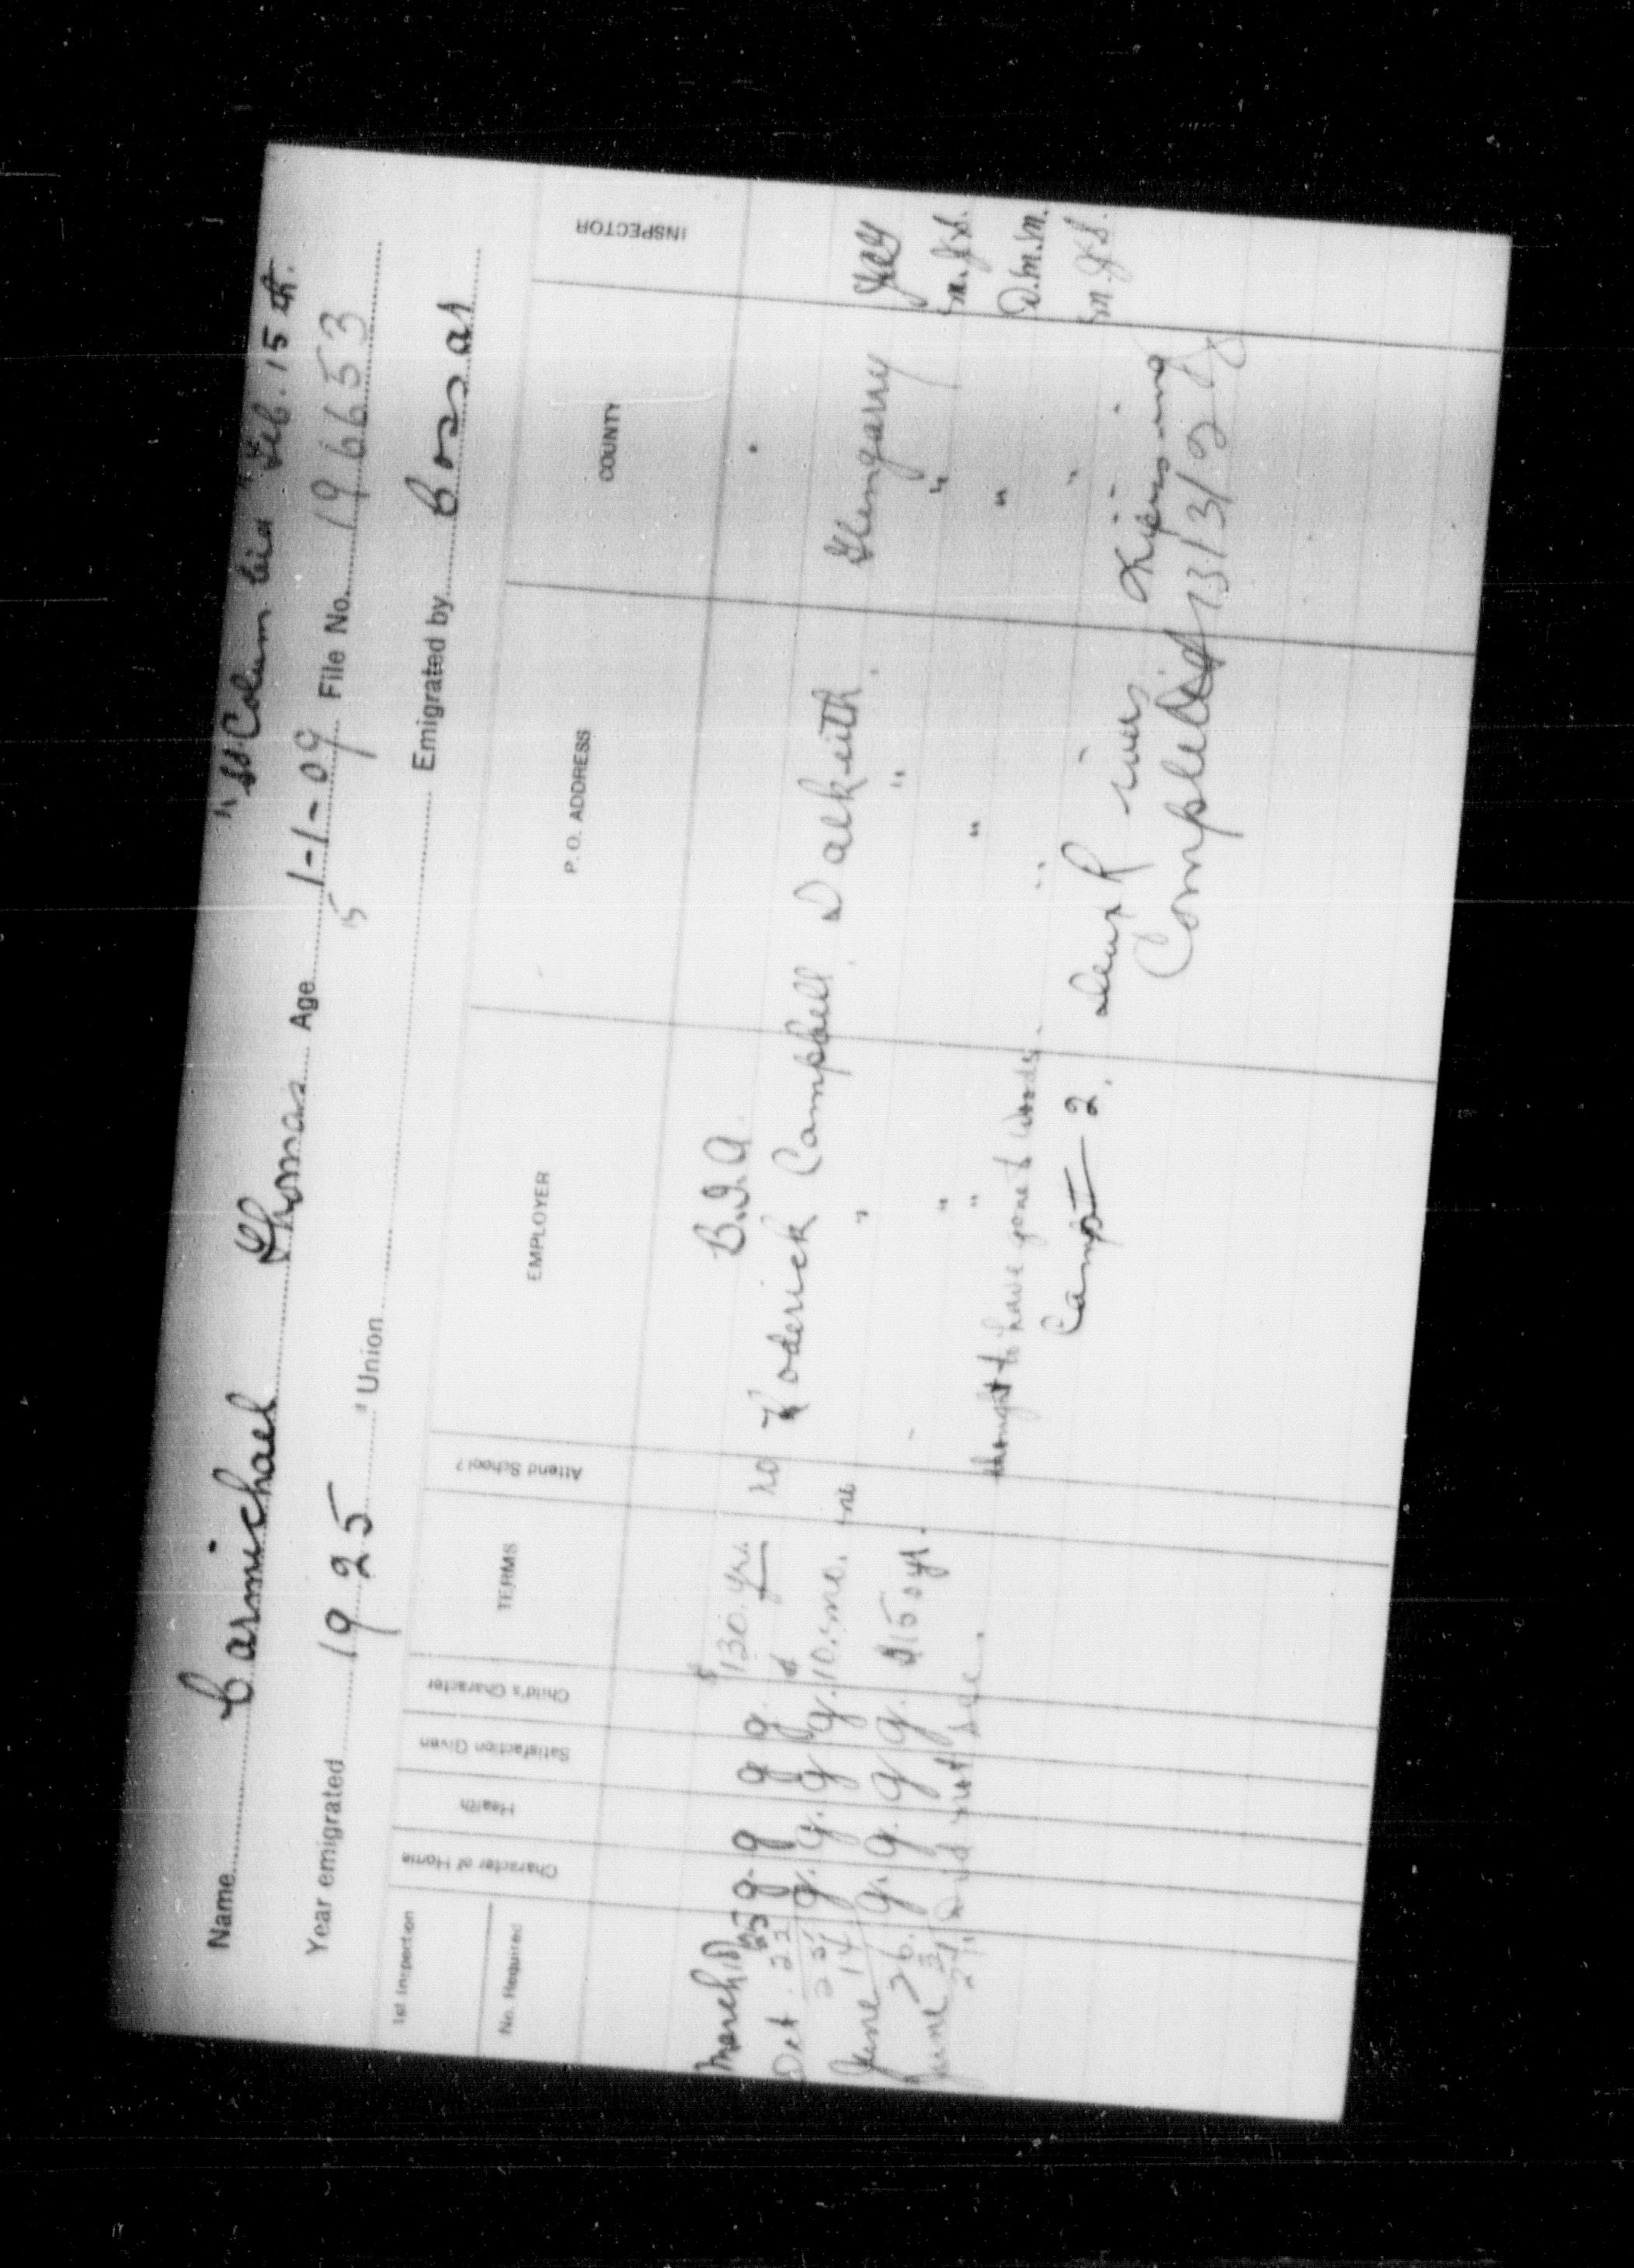 "SS Columbia" Feb. 15th.
Name Carmichael Thomas Age 1-1-09 File No. 196653
15
Year emigrated 1925 "Union Emigrated by Cossar
1st Inspection
No. Required
Character of Home
Health
Satisfaction Given
Child's Character
TERMS
Attend School?
EMPLOYER
P. O. ADDRESS
COUNTY
INSPECTOR
March 18 25 B.I.A.
Oct. 22 25 g. g g g. $130. yr. no Roderick Campbell. Dalkeith. Glengarry
June 14 g. g. g g. $10. mo. no " " "
June 26. g. g. g g. $150 yr. " " " D.M.M.
Did not see. " " " M.J.S.
thought to have gone to Woods.
Camp 2, Deux Rivers Nipissing
Completed 13/3/2